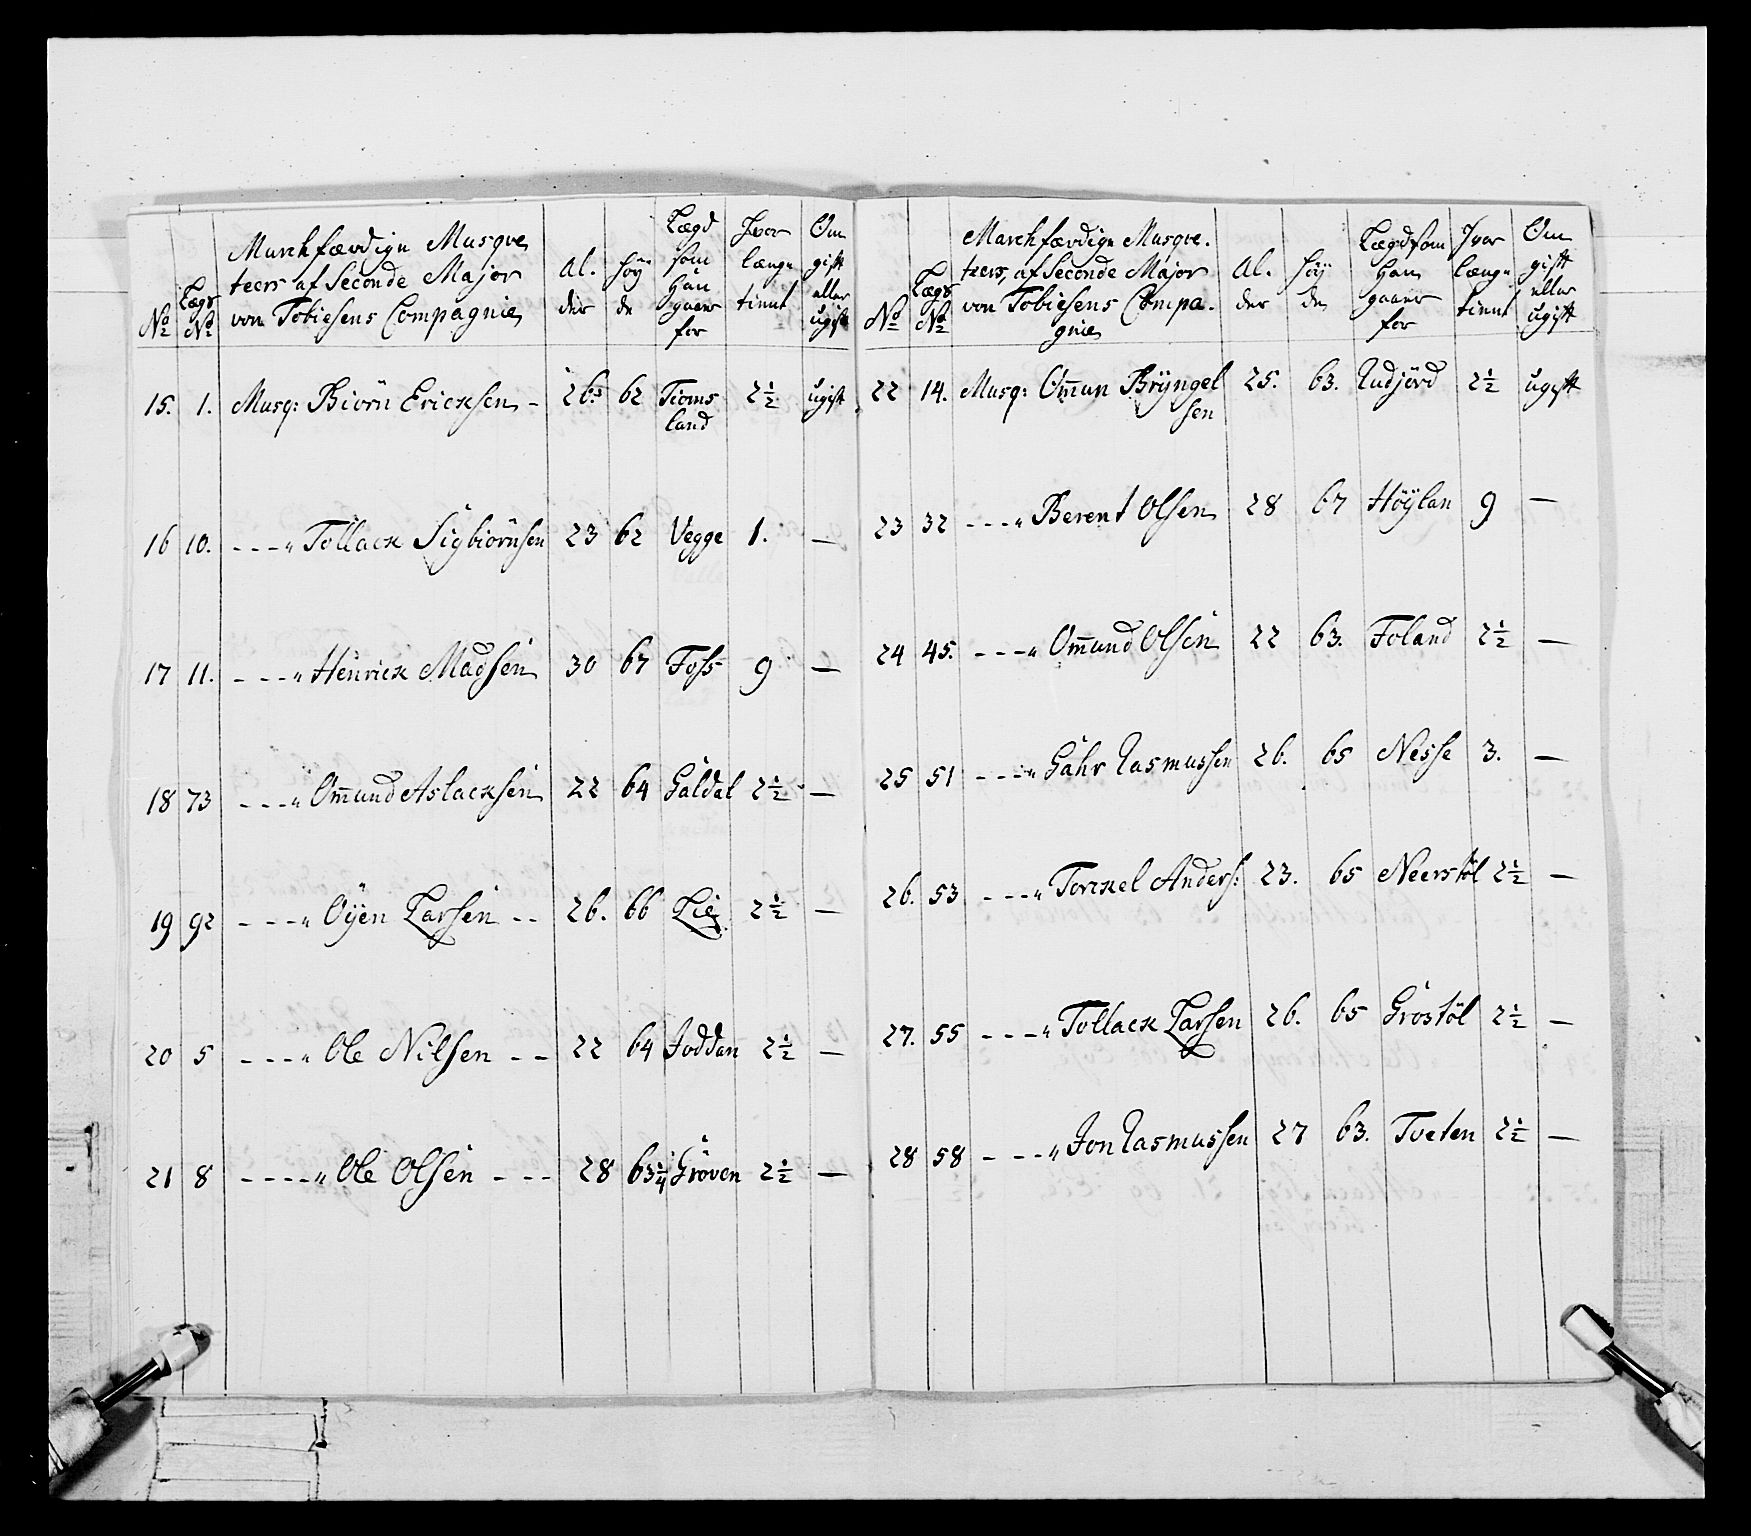 Marchfærdige Musqve
teers af Seconde Major
von Tobiesens Compagnie
No
Lægs No
Al. der
Höÿ de
Lægd som Han gaaer for
Hvor længe tient
Om gift eller ugift
15. 1. Musq: Biörn Ericksen - 26. 62 Tioms 2½ ugift
land
16 10. - - - " Tollack Sigbiörnsen 23 62 Vegge 1. —
17 11. - - - " Henrick Madsen 30 67 Foss 9 —
18 73 - - - " Om̅und Aslacksen 22 64 Galdal 2½ —
19 92 - - - - " Oÿen Larsen - - 26. 66 Lie 2½ —
20 5 - - - - " Ole Nilsen - - 22 64 Joddan 2½ —
21 8 - - - - " Ole Olsen - - - 28 63¼ Gröven 2½ —
Marchfærdige Musqve.
teers, af Seconde Major
von Tobiesens Compa.
gnie
No
Lægs No
Al. der
Höÿ de
Lægd som Han gaaer for
Hvor længe tient
Om gift eller ugift
22 14. Musq: Om̅un Brÿngel 25. 63. Udjörd 2½ ugift
sen
23 32 - - - " Berent Olsen 28 67 Höÿlan 9 —
24 45. - - - - " Om̅und Olsen 22 63. Foland 2½ —
25 51 - - - - " Gahr Rasmussen 26. 65 Nesse 3. —
26. 53 - - - - " Torckel Anders: 23. 65 Neerstöl 2½ —
27. 55 - - - - " Tollack Larsen 26. 65 Grostöl 2½ —
28 58 - - - " Jon Rasmussen 27 63. Tveten 2½ —